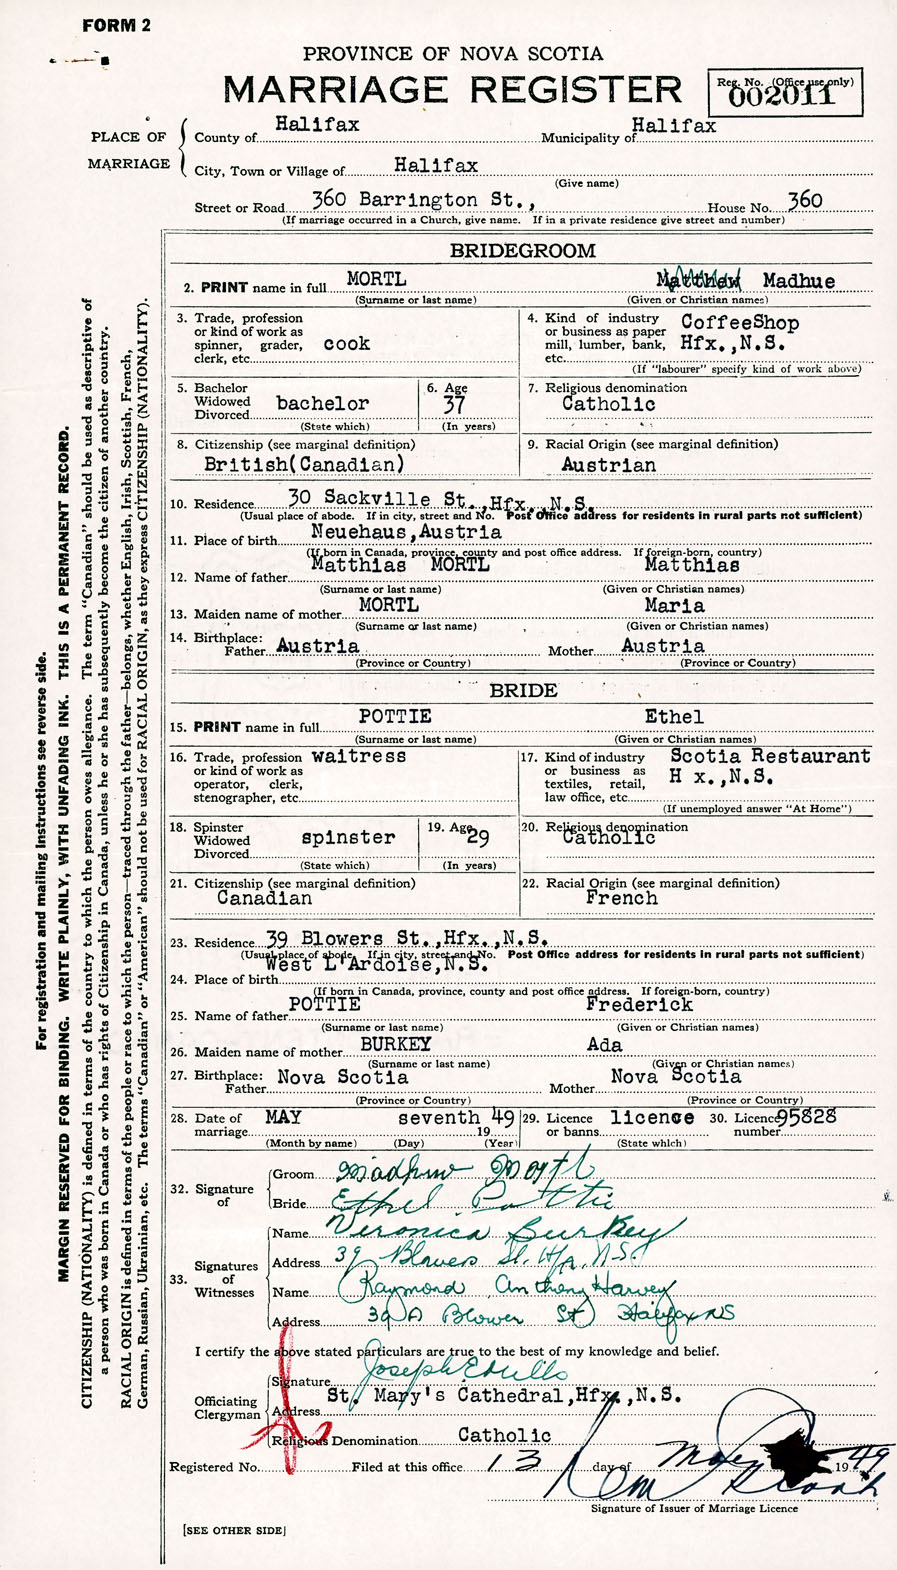 FORM 2
PROVINCE OF NOVA SCOTIA
MARRIAGE REGISTER
Reg. No. (Office use only)
002011
PLACE OF MARRIAGE
County of Halifax Municipality of Halifax
City, Town or Village of Halifax
(Give name)
Street or Road 360 Barrington St., House No. 360
(If marriage occurred in a Church, give name. If in a private residence give street and number)
BRIDEGROOM
2. PRINT name in full MORTL Matthew Madhue
(Surname or last name) (Given or Christian names)
3. Trade, profession or kind of work as spinner, grader, clerk, etc. cook
4. Kind of industry or business as paper mill, lumber, bank, etc. CoffeeShop Hfx.,N.S.
(If "labourer" specify kind of work above)
5. Bachelor Widowed Divorced bachelor
(State which)
6. Age 37
(In years)
7. Religious denomination Catholic
8. Citizenship (see marginal definition) British(Canadian)
9. Racial Origin (see marginal definition) Austrian
10. Residence 30 Sackville St.,Hfx.,N.S.
(Usual place of abode. If in city, street and No. Post Office address for residents in rural parts not sufficient)
11. Place of birth Neuehaus,Austria
(If born in Canada, province, county and post office address. If foreign-born, country)
12. Name of father Matthias MORTL Matthias
(Surname or last name) (Given or Christian names)
13. Maiden name of mother MORTL Maria
(Surname or last name) (Given or Christian names)
14. Birthplace: Father Austria Mother Austria
(Province or Country) (Province or Country)
BRIDE
15. PRINT name in full POTTIE Ethel
(Surname or last name) (Given or Christian names)
16. Trade, profession or kind of work as operator, clerk, stenographer, etc. waitress
17. Kind of industry or business as textiles, retail, law office, etc. Scotia Restaurant H x.,N.S.
(If unemployed answer "At Home")
18. Spinster Widowed Divorced spinster
(State which)
19. Age 29
(In years)
20. Religious denomination Catholic
21. Citizenship (see marginal definition) Canadian
22. Racial Origin (see marginal definition) French
23. Residence 39 Blowers St.,Hfx.,N.S.
(Usual place of abode. If in city, street and No. Post Office address for residents in rural parts not sufficient)
24. Place of birth West L'Ardoise,N.S.
(If born in Canada, province, county and post office address. If foreign-born, country)
25. Name of father POTTIE Frederick
(Surname or last name) (Given or Christian names)
26. Maiden name of mother BURKEY Ada
(Surname or last name) (Given or Christian names)
27. Birthplace: Father Nova Scotia Mother Nova Scotia
(Province or Country) (Province or Country)
28. Date of marriage MAY seventh 1949
(Month by name) (Day) (Year)
29. Licence or banns licence
(State which)
30. Licence number 95828
32. Signature of
Groom Madhue Mortl
Bride Ethel Pottie
33. Signatures of Witnesses
Name Veronica Burkey
Address 39 Blowers St. Hfx. N.S.
Name Raymond Anthony Harvey
Address 39A Blower St Halifax NS
I certify the above stated particulars are true to the best of my knowledge and belief.
Officiating Clergyman
Signature Joseph E. Mills
Address St. Mary's Cathedral,Hfx.,N.S.
Religious Denomination Catholic
Registered No. Filed at this office 13 day of May 1949
Signature of Issuer of Marriage Licence
[SEE OTHER SIDE]
For registration and mailing instructions see reverse side.
MARGIN RESERVED FOR BINDING. WRITE PLAINLY, WITH UNFADING INK. THIS IS A PERMANENT RECORD.
CITIZENSHIP (NATIONALITY) is defined in terms of the country to which the person owes allegiance. The term "Canadian" should be used as descriptive of
a person who was born in Canada or who has rights of Citizenship in Canada, unless he or she has subsequently become the citizen of another country.
RACIAL ORIGIN is defined in terms of the people or race to which the person—traced through the father—belongs, whether English, Irish, Scottish, French,
German, Russian, Ukrainian, etc. The terms "Canadian" or "American" should not be used for RACIAL ORIGIN, as they express CITIZENSHIP (NATIONALITY).